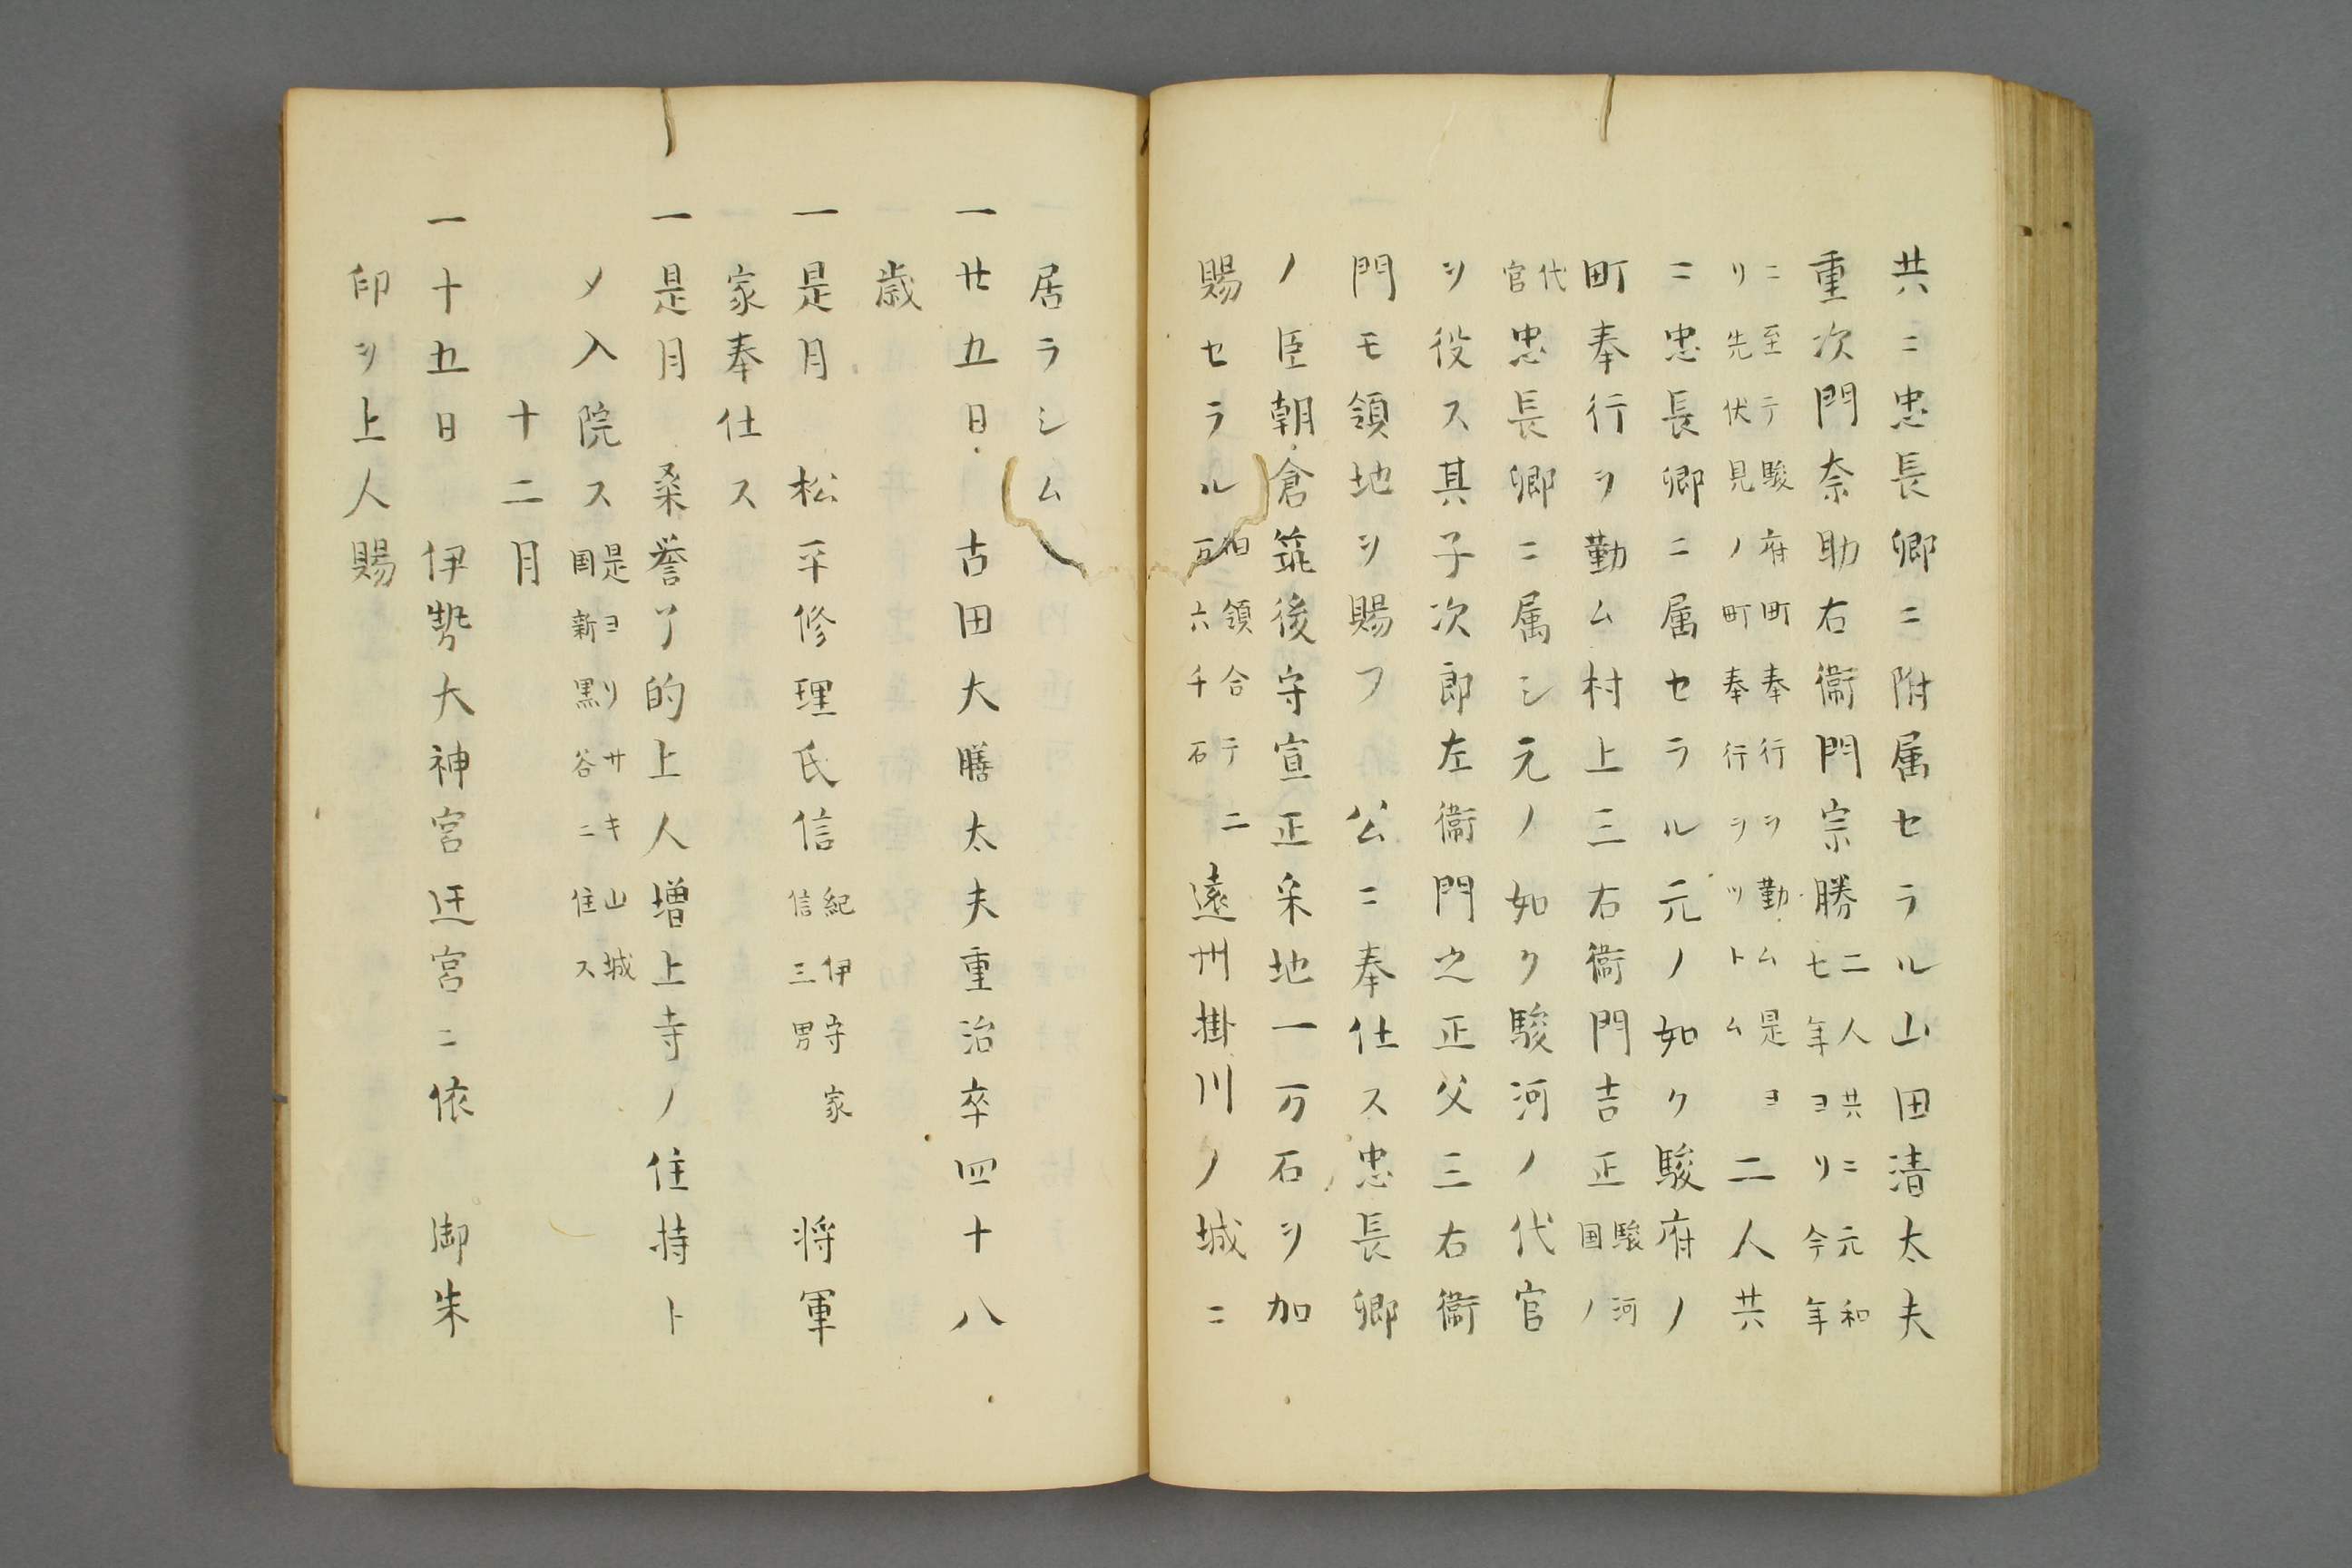 共ニ忠長卿ニ附属セラル山田清太夫
重次門奈助右衞門宗勝二人共ニ元和七年ヨリ今年
ニ至テ駿府町奉行ヲ勤ム是ヨリ先伏見ノ町奉行ヲツトム二人共
ニ忠長卿ニ属セラル元ノ如ク駿府ノ
町奉行ヲ勤ム村上三右衞門吉正駿河国ノ
代官忠長卿ニ属シ元ノ如ク駿河ノ代官
ヲ役ス其子次郎左衞門之正父三右衞
門モ領地ヲ賜フ 公ニ奉仕ス忠長卿
ノ臣朝倉筑後守宣正采地一万石ヲ加
賜セラル旧領合テ二万六千石遠州掛川ノ城ニ
居ラシム
一廿五日 古田大膳太夫重治卒四十八
歳
一是月 松平修理氏信紀伊守家信三男 将軍
家奉仕ス
一是月 桑誉了的上人増上寺ノ住持ト
メ入院ス是ヨリサキ山城国新黒谷ニ住ス
十二月
一十五日 伊勢大神宮迁宮ニ依 御朱
印ヲ上人賜